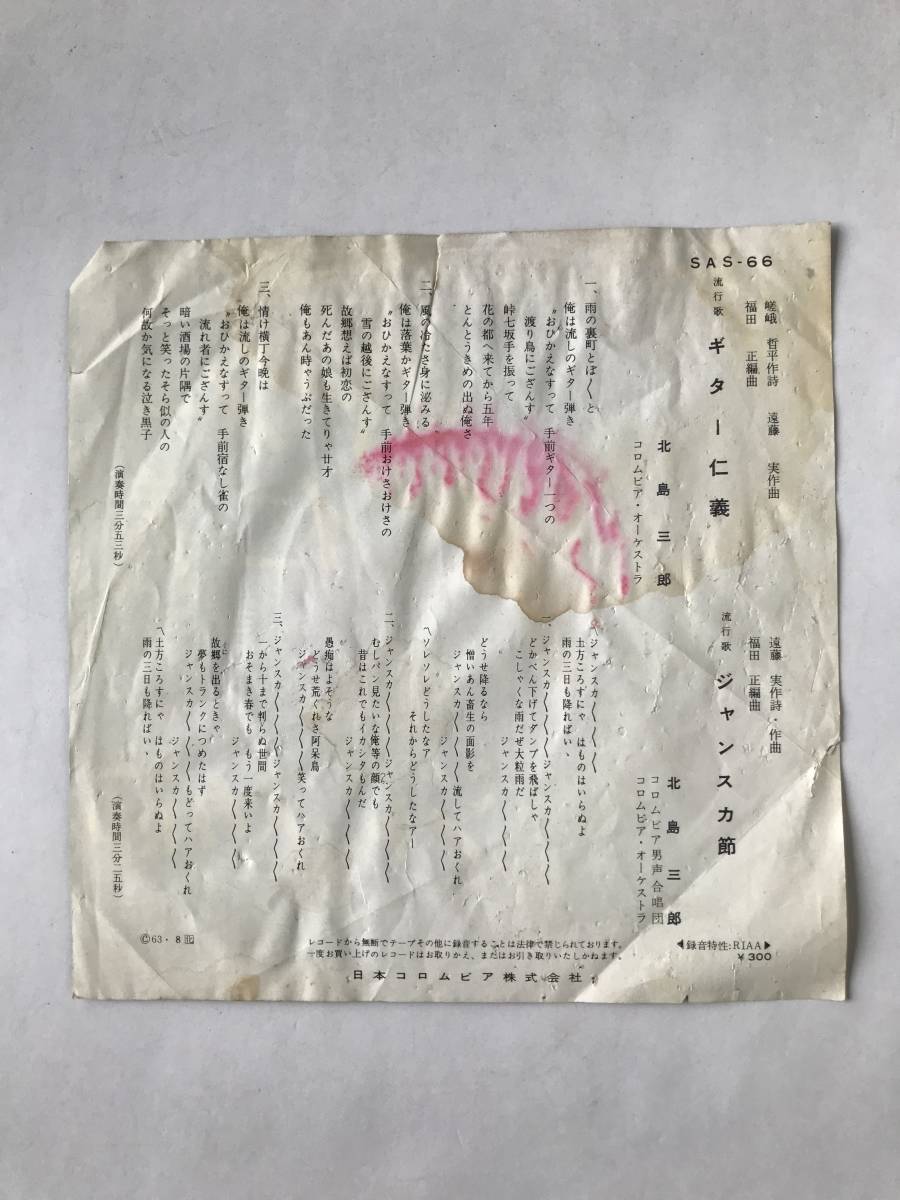 SAS-66
流行歌
嵯峨 哲平作詩 遠藤 実作曲
福田 正編曲
ギター仁義
北島三郎
コロムビア・オーケストラ
一、雨の裏町とぼ〱と
俺は流しのギター弾き
〝おひかえなすって 手前ギター一つの
渡り鳥にござんす〟
峠七坂手を振って
花の都へ来てから五年
とんとうきめの出ぬ俺さ
二、風の冷たさ身に泌みる
俺は落葉かギター弾き
〝おひかえなすって 手前おけさおけさの
雪の越後にござんす〟
故郷想えば初恋の
死んだあの娘も生きてりゃ廿才
俺もあん時ゃうぶだった
三、情け横丁今晩は
俺は流しのギター弾き
〝おひかえなすって 手前宿なし雀の
流れ者にござんす〟
暗い酒場の片隅で
そっと笑ったそら似の人の
何故か気になる泣き黒子
(演奏時間三分五三秒)
流行歌
遠藤 実作詩・作曲
福田 正編曲
ジャンスカ節
北島三郎
コロムビア男声合唱団
コロムビア・オーケストラ
一、ジャンスカ〱〱〱
土方ころすにゃ はものはいらぬよ
雨の三日も降ればいゝ
ジャンスカ〱〱〱
どかべん下げてダンプを飛ばしゃ
こしゃくな雨だぜ大粒雨だ
ジャンスカ〱〱
どうせ降るなら
憎いあん畜生の面影を
ジャンスカ〱〱流してハアおくれ
ジャンスカ〱〱
〽ソレソレどうしたなア
それからどうしたなアー
二、ジャンスカ〱〱ジャンスカ〱〱〱
むしパン見たいな俺等の顔でも
昔はこれでもイカシタもんだ
ジャンスカ〱〱
愚痴はよそうな
どうせ荒くれさ阿呆鳥
ジャンスカ〱〱笑ってハアおくれ
三、ジャンスカ〱〱ジャンスカ〱〱〱
一から十まで判らぬ世間
おそまき春でも もう一度来いよ
ジャンスカ〱〱
故郷を出るときゃ
夢もトランクにつめたはず
ジャンスカ〱〱もどってハアおくれ
ジャンスカ〱〱
〽土方ころすにゃ はものはいらぬよ
雨の三日も降ればいゝ
(演奏時間三分二五秒)
◀録音特性:RIAA▶
¥300
レコードから無断でテープその他に録音することは法律で禁じられております。
一度お買い上げのレコードはお取りかえ、またはお引き取りいたしかねます。
日本コロムビア株式会社
Ⓒ63・8